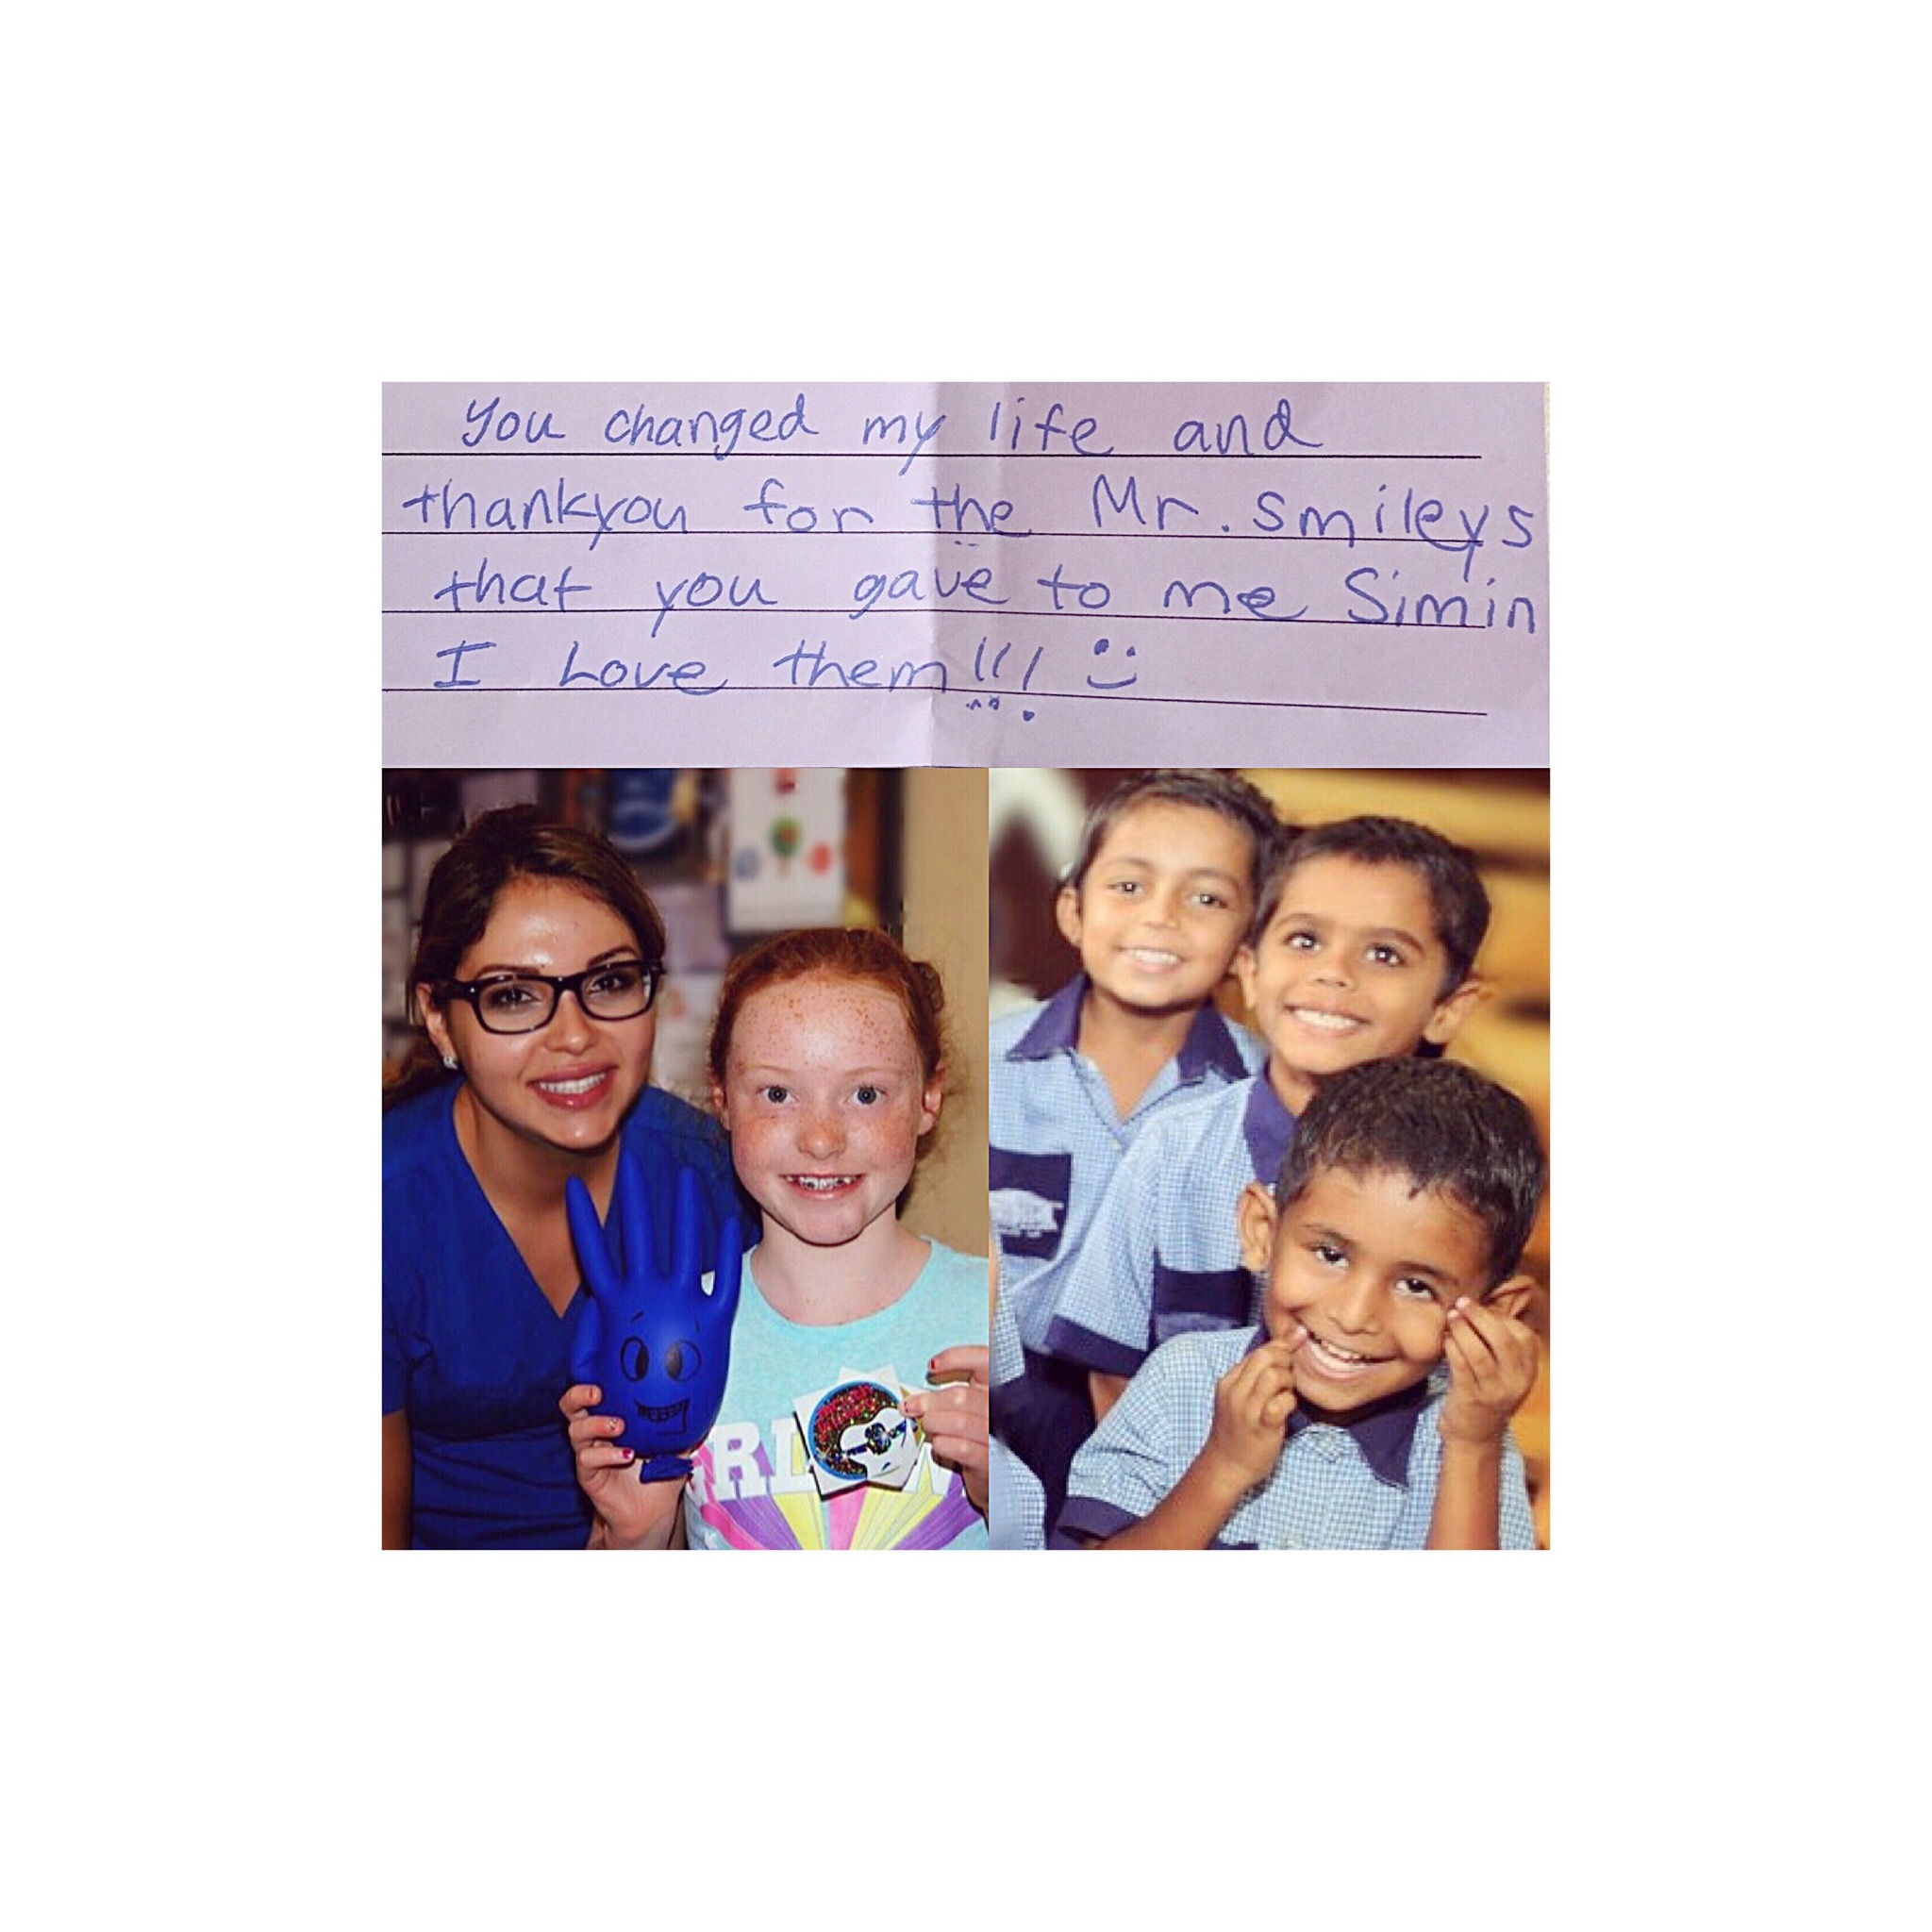 You changed my life and
thankyou for the Mr. smileys
that you gave to me Simin
I Love them!!! :)